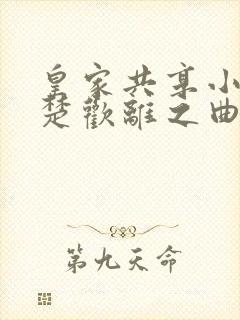 皇家共享小
楚歡離之曲
第九天命